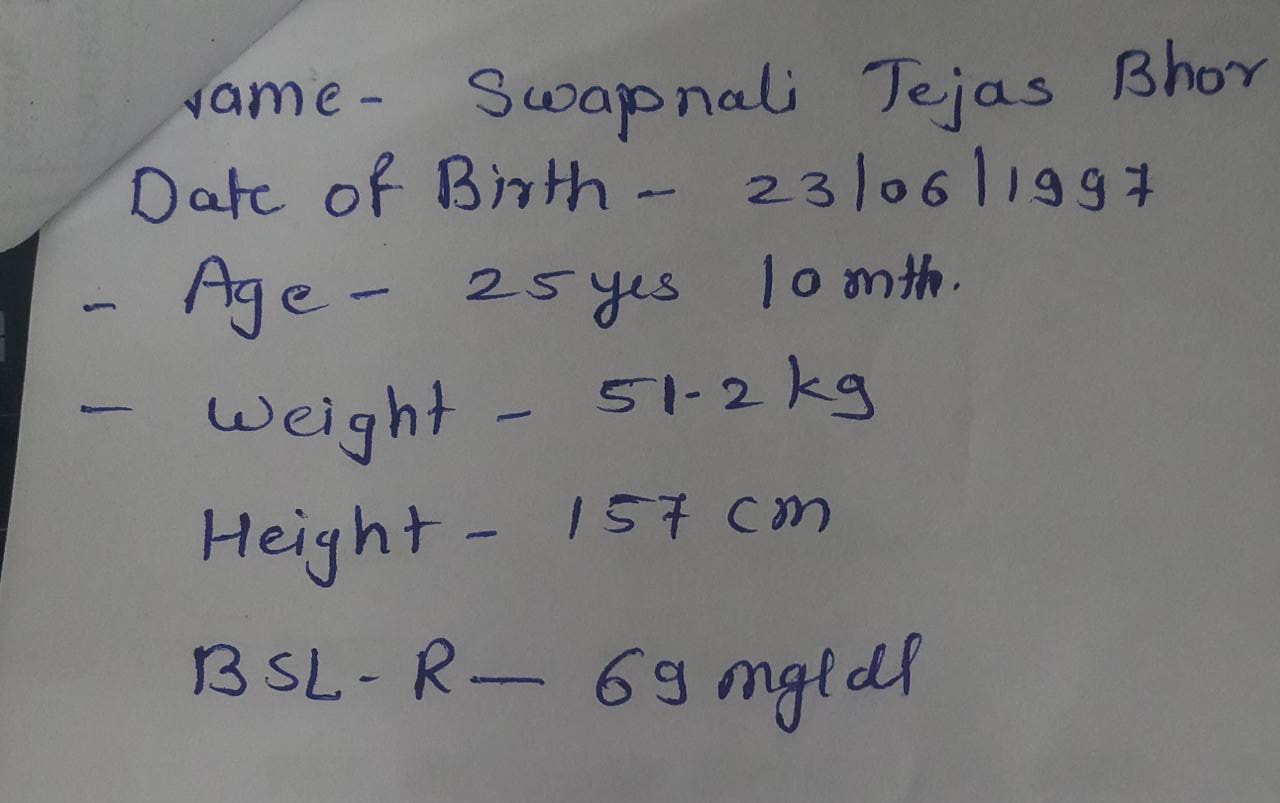 Name - Swapnali Tejas Bhor
Date of Birth - 23/06/1997
- Age - 25 yes 10 mth.
- Weight - 51.2 kg
Height - 157 cm
BSL - R - 69 mg/dl